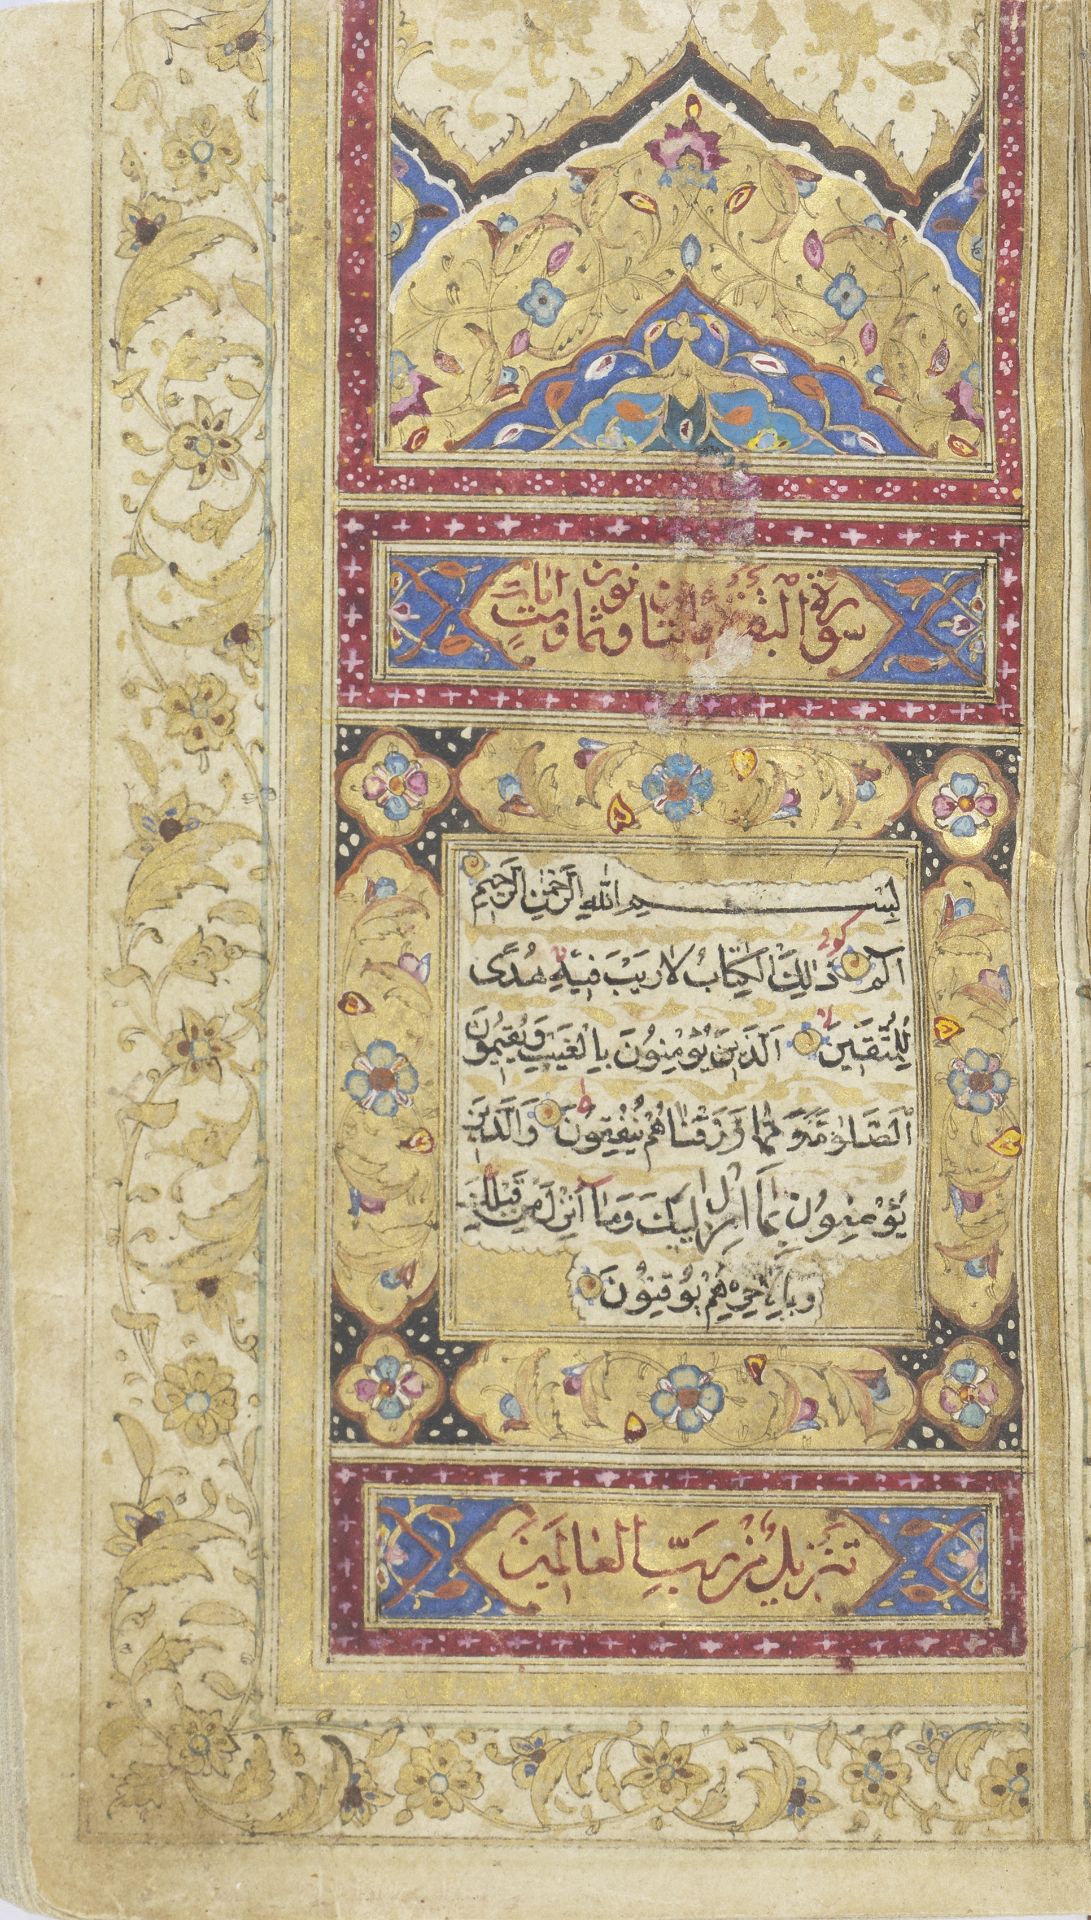 سورة البقرة مائتا وثمانون وست ايات
بِسْمِ اللهِ الرَّحْمٰنِ الرَّحِيمِ
الٓمٓ ذٰلِكَ الْكِتَابُ لَا رَيْبَ فِيهِ هُدًى
لِلْمُتَّقِينَ الَّذِينَ يُؤْمِنُونَ بِالْغَيْبِ وَيُقِيمُونَ
الصَّلٰوةَ وَمِمَّا رَزَقْنَاهُمْ يُنْفِقُونَ وَالَّذِينَ
يُؤْمِنُونَ بِمَا اُنْزِلَ اِلَيْكَ وَمَا اُنْزِلَ مِنْ قَبْلِكَ
وَبِالْاٰخِرَةِ هُمْ يُوقِنُونَ
تَنْزِيلٌ مِنْ رَبِّ الْعَالَمِينَ